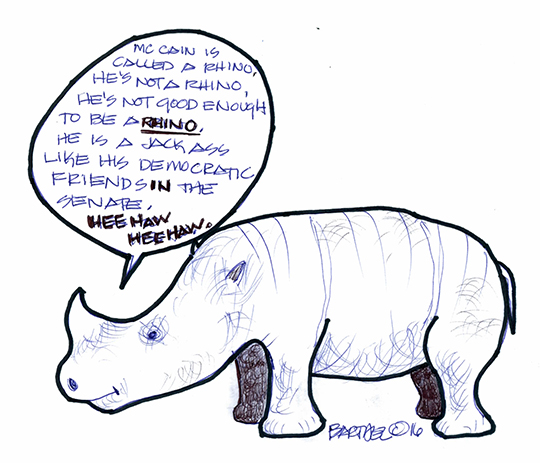 MC CAIN IS
CALLED A RHINO,
HE'S NOT A RHINO,
HE'S NOT GOOD ENOUGH
TO BE A RHINO.
HE IS A JACK ASS
LIKE HIS DEMOCRATIC
FRIENDS IN THE
SENATE,
HEE HAW
HEE HAW.
BARTHEL©16